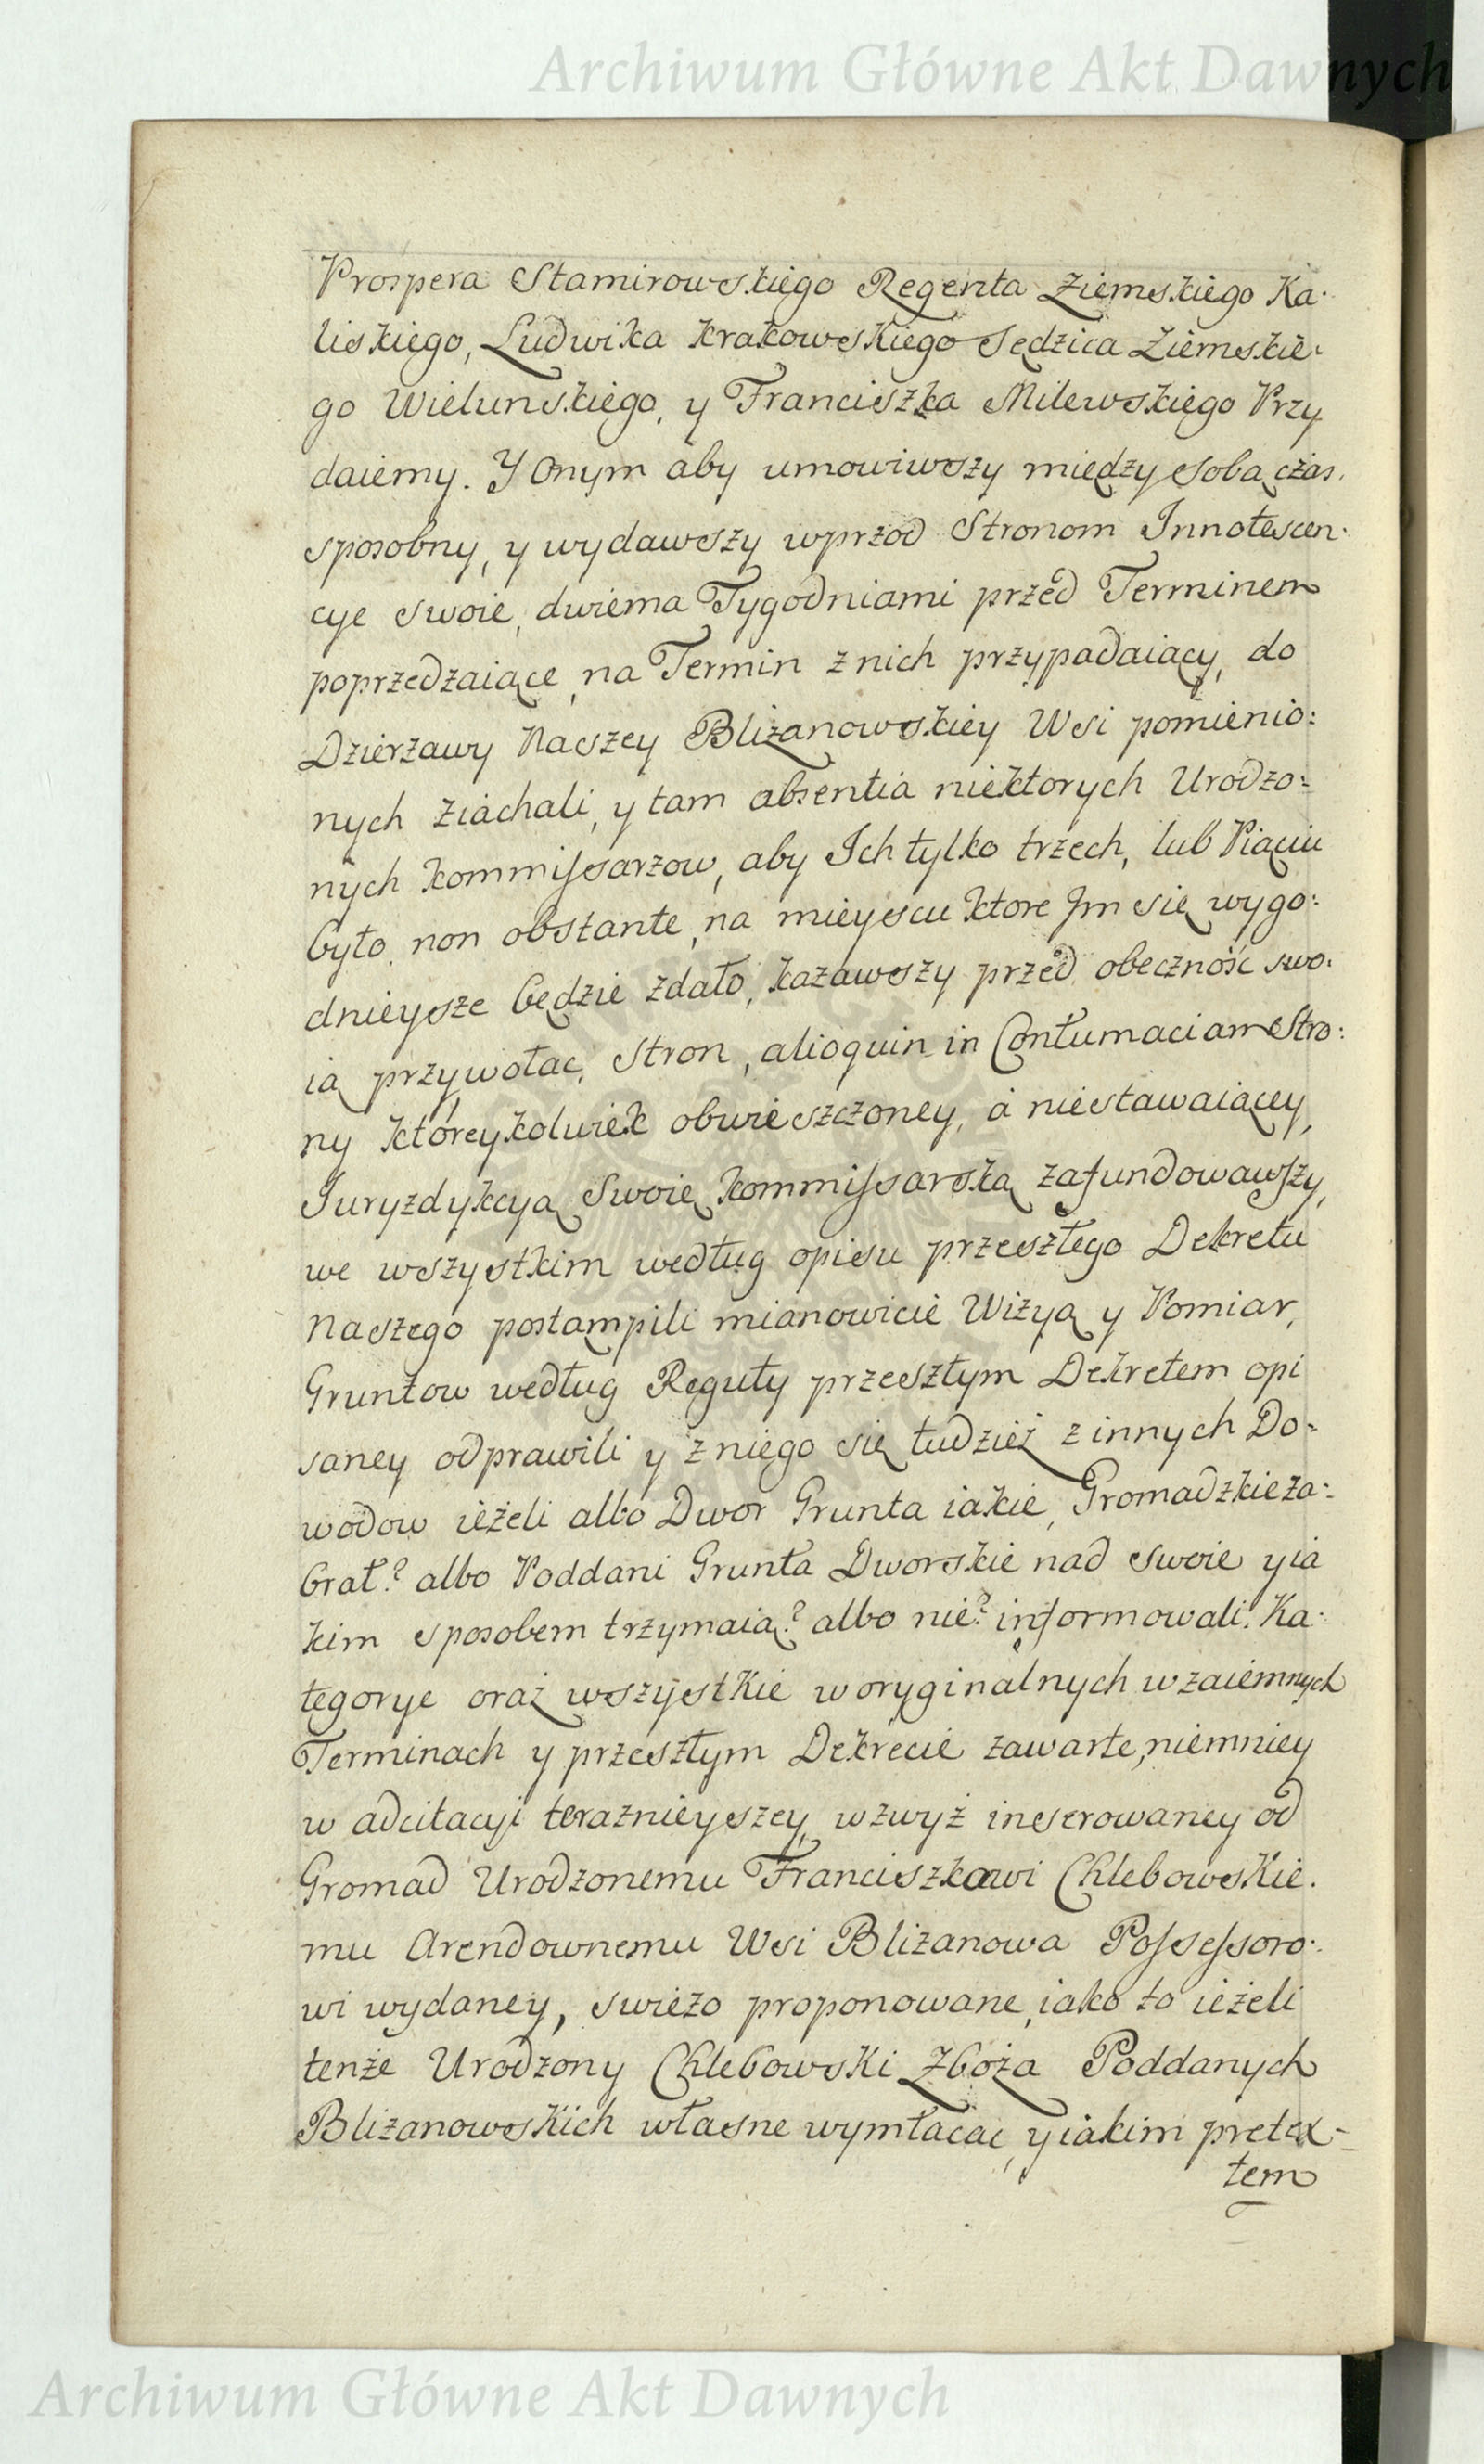 Archiwum Główne Akt Dawnych
Prospera Stamirowskiego Regenta Ziemskiego Ka-
liskiego, Ludwika Krakowskiego Sędzica Ziemskie-
go Wielunskiego, y Franciszka Milewskiego Przy
daiemy. Y Onym aby umowiwszy między sobą czas,
sposobny, y wydawszy wprzod Stronom Innotescen-
cye swoie, dwiema Tygodniami przed Terminem
poprzedzaiące, na Termin z nich przypadaiący, do
Dzierzawy Naszey Bliżanowskiey Wsi pomienio:
nych ziachali, y tam absentia niektorych Urodzo:
nych Kommissarzow, aby Ich tylko trzech, lub Piąciu
było, non obstante, na mieyscu ktore Jm się wygo:
dnieysze będzie zdało, kazawszy przed obecznośc swo:
ią przywołac, Stron, alioquin in Contumaciam Stro:
ny ktoreykolwiek obwieszczoney, a niestawaiącey,
Iuryzdykcyą Swoię Kommissarską zafundowawszy,
we wszystkim według opisu przeszłego Dekretu
Naszego postąmpili mianowicie Wizyą y Pomiar,
Gruntow według Reguły przeszłym Dekretem opi
saney odprawili y z niego się tudzież z innych Do:
wodow ieżeli albo Dwor Grunta iakie, Gromadzkie za:
brał? albo Poddani Grunta Dworskie nad swoie y ia
kim sposobem trzymaią? albo nie? informowali. Ka-
tegorye oraz wszystkie w oryginalnych wzaiemnych
Terminach y przeszłym Dekrecie zawarte, niemniey
w adcitacyi teraznieyszey wzwyż inserowaney od
Gromad Urodzonemu Franciszkowi Chlebowskie-
mu Arendownemu Wsi Bliżanowa Possessoro-
wi wydaney, swieżo proponowane, iako to ieżeli
tenże Urodzony Chlebowski Zboża Poddanych
Bliżanowskich własne wymłacac, y iakim pretex-
tem
Archiwum Główne Akt Dawnych